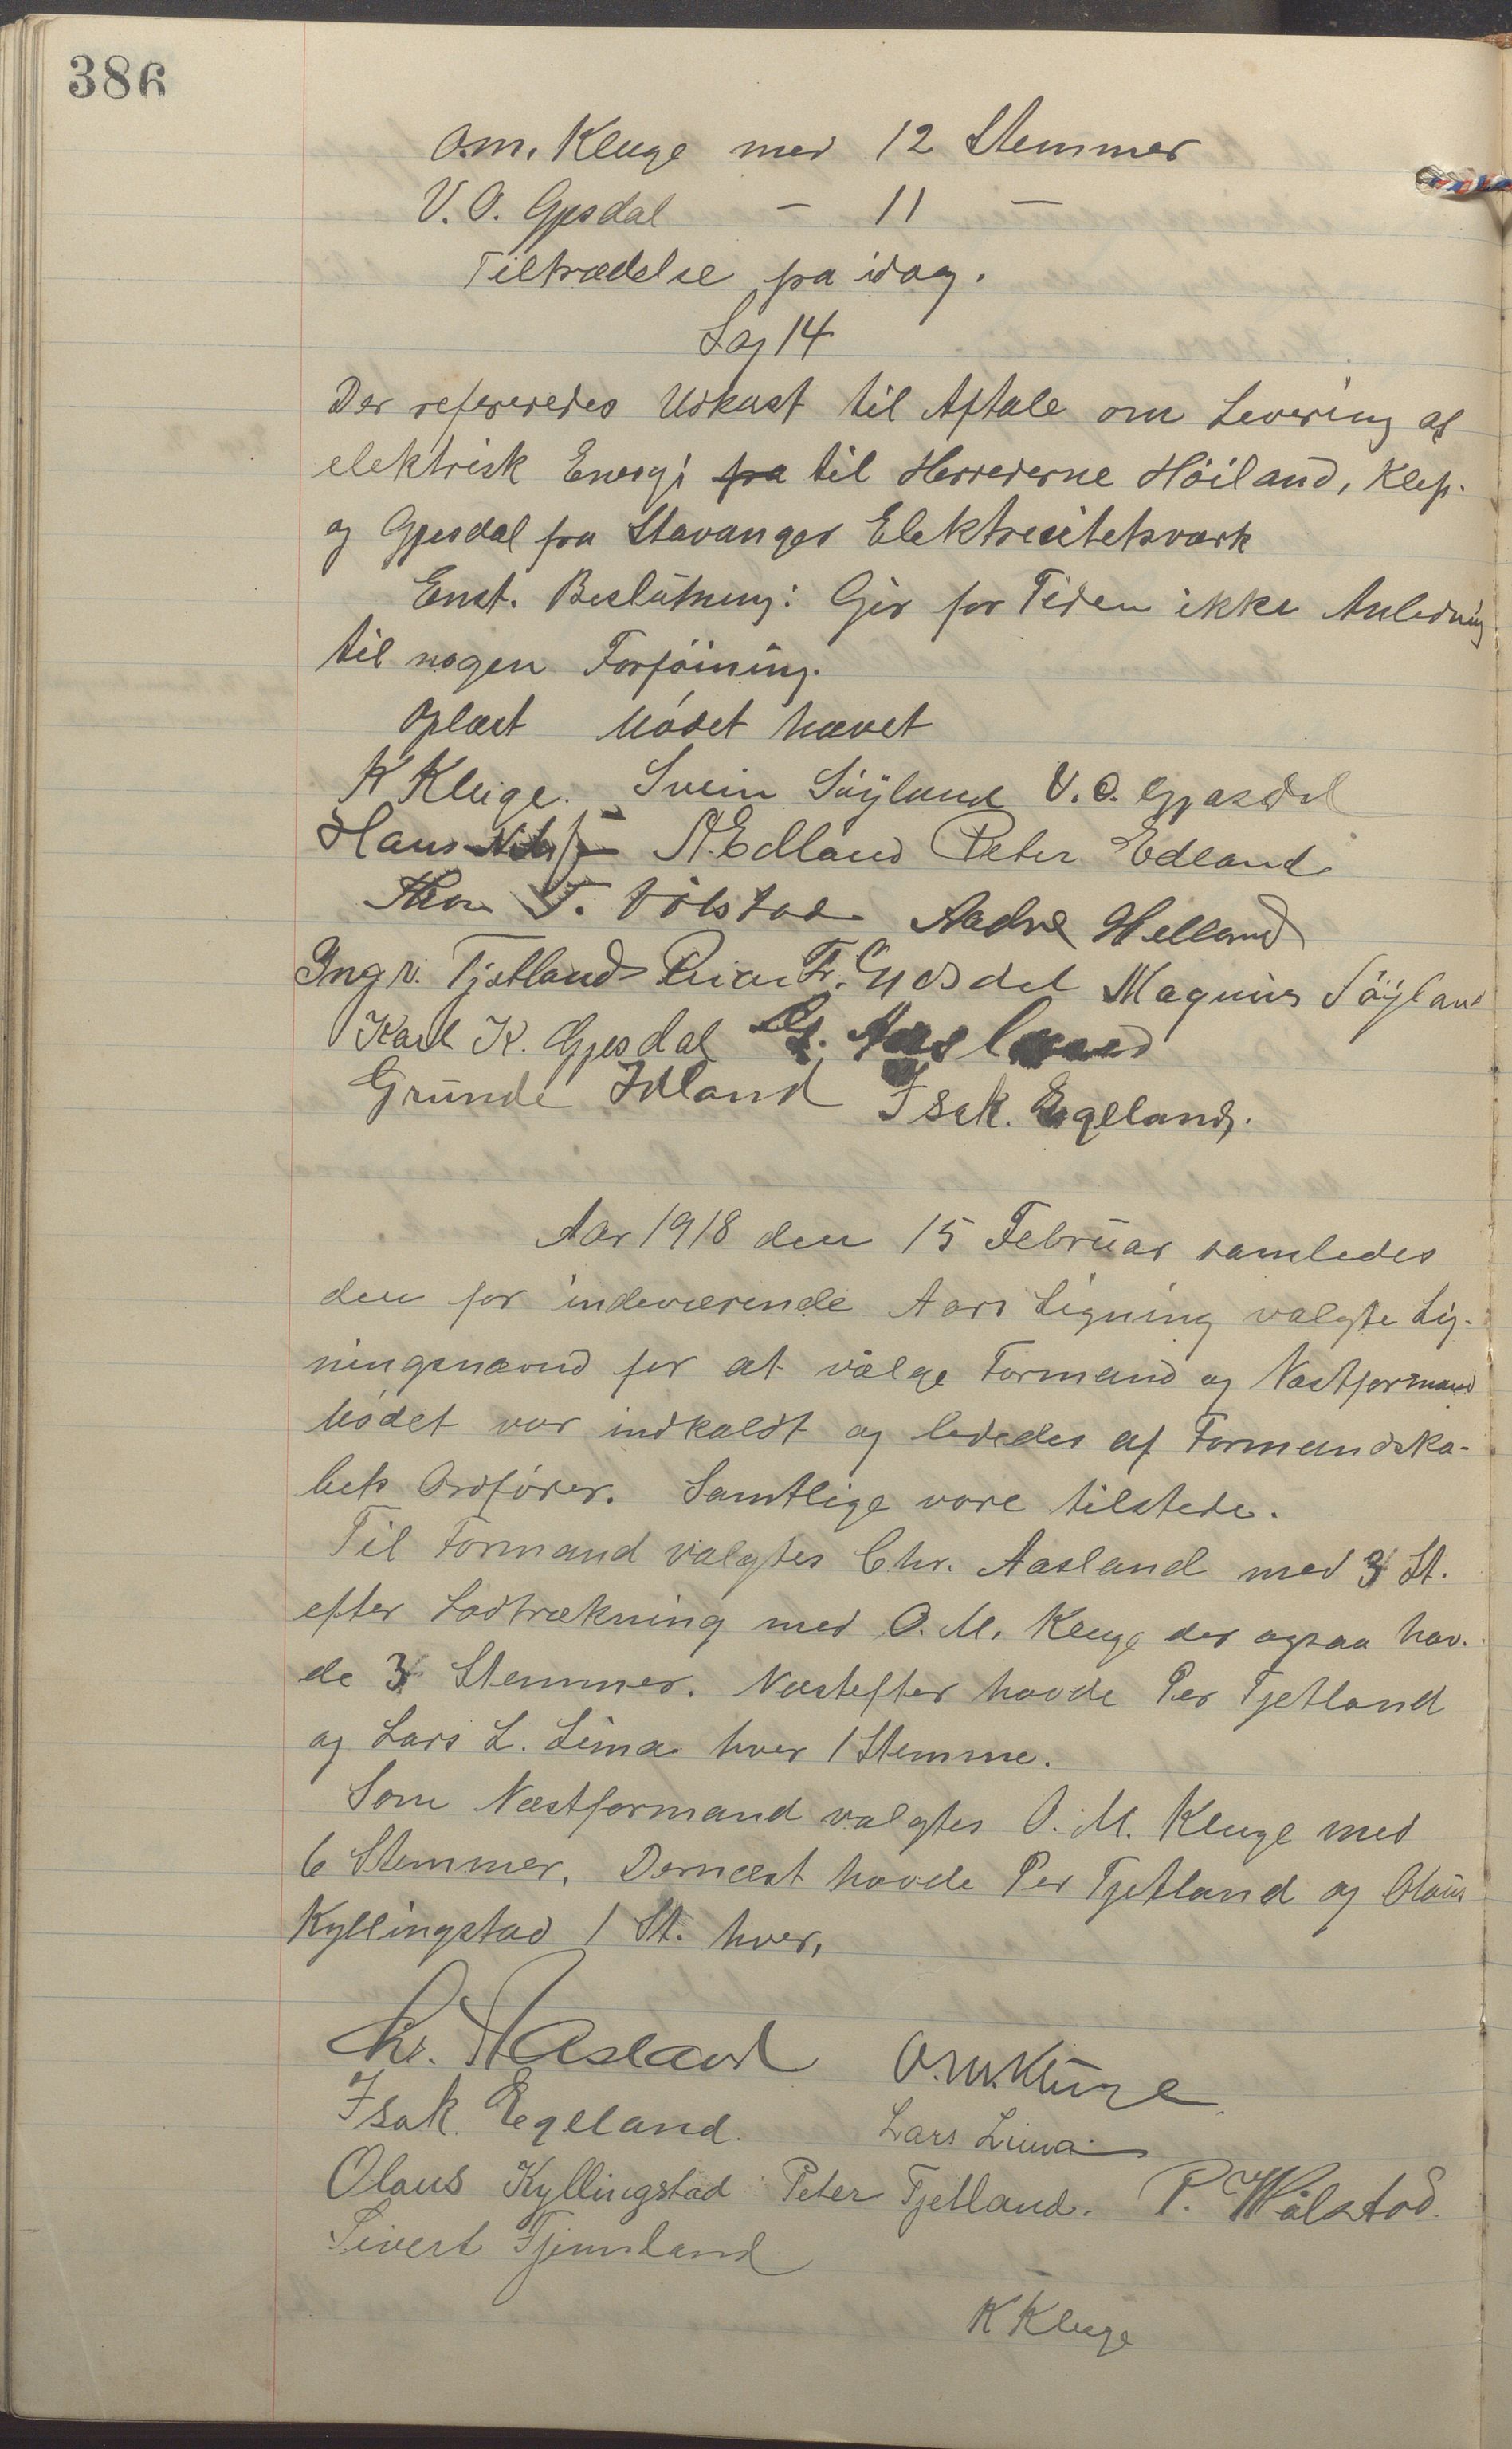 386
O.m. Kluge med 12 Stemmer
V. O. Gjesdal - 11 -
Tiltrædelse fra idag.
Sag 14
Der refereredes Udkast til Aftale om Levering af
elektrisk Energi fra til Herrederne Höiland, Klep.
og Gjesdal fra Stavanger Elektricitetsværk
Enst. Beslutning: Gir for Tiden ikke Anledning
til nogen Forföining.
Oplæst Mödet hævet
K Kluge. Svein Söyland V. O. Gjesdal
Hans A. Edland Peter Edland
T. Volstad Aadne Helland
Ingv. Tjetland Fr. Gjesdal Magnus Söyland
Karl K. Gjesdal Aasland
Grunde Idland Isak. Egeland.
Aar 1918 den 15 Februar samledes
den for indeværende Aars Ligning valgte Lig-
ningsnævnd for at vælge Formand og Næstformand
Mödet var indkaldt og lededes af Formandska-
bets Ordförer. Samtlige vare tilstede.
Til Formand valgtes Chr. Aasland med 3 St.
efter Lodtrækning med O. M. Kluge der ogsaa hav-
de 3 Stemmer. Næstefter havde Per Tjetland
og Lars L. Lima hver 1 Stemme.
Som Næstformand valgtes O. M. Kluge med
6 Stemmer. Dernæst havde Per Tjetland og Olaus
Kyllingstad 1 St. hver.
Chr. Aasland O. M. Kluge
Isak. Egeland. Lars Lima
Olaus Kyllingstad Peter Tjetland. P. Wölstad.
Sivert Fjermland
K Kluge